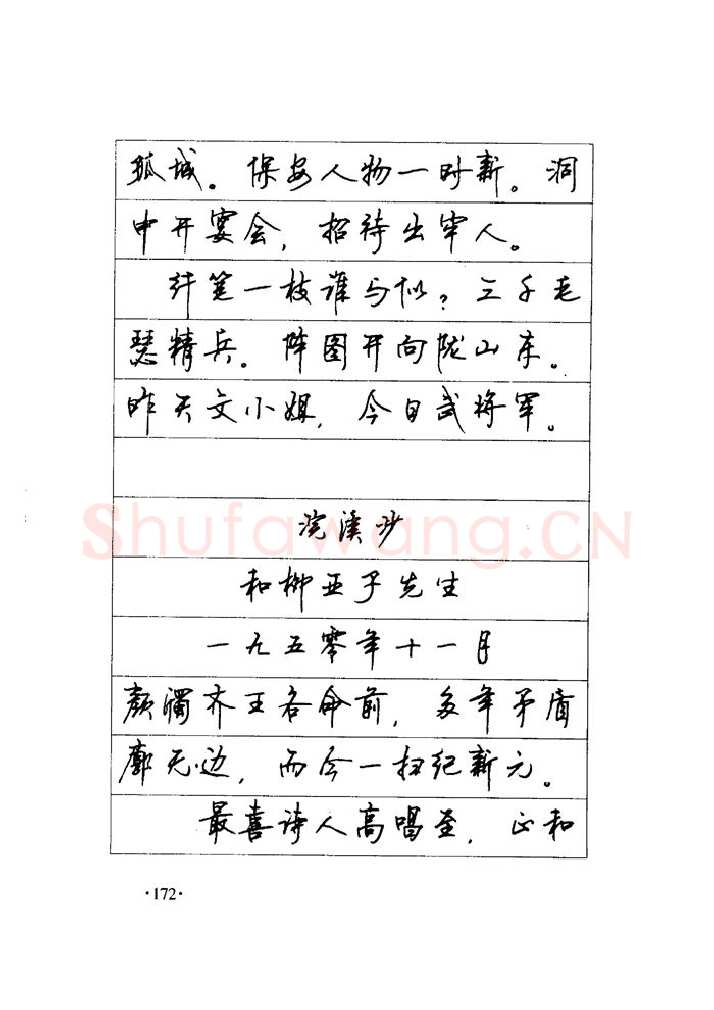 孤城。保安人物一时新。洞
中开宴会，招待出牢人。
纤笔一枝谁与似？三千毛
瑟精兵。阵图开向陇山东。
昨天文小姐，今日武将军。
Shufawang.CN
浣溪沙
和柳亚子先生
一九五零年十一月
颜斶齐王各命前，多年矛盾
廓无边，而今一扫纪新元。
最喜诗人高唱至，正和
·172·